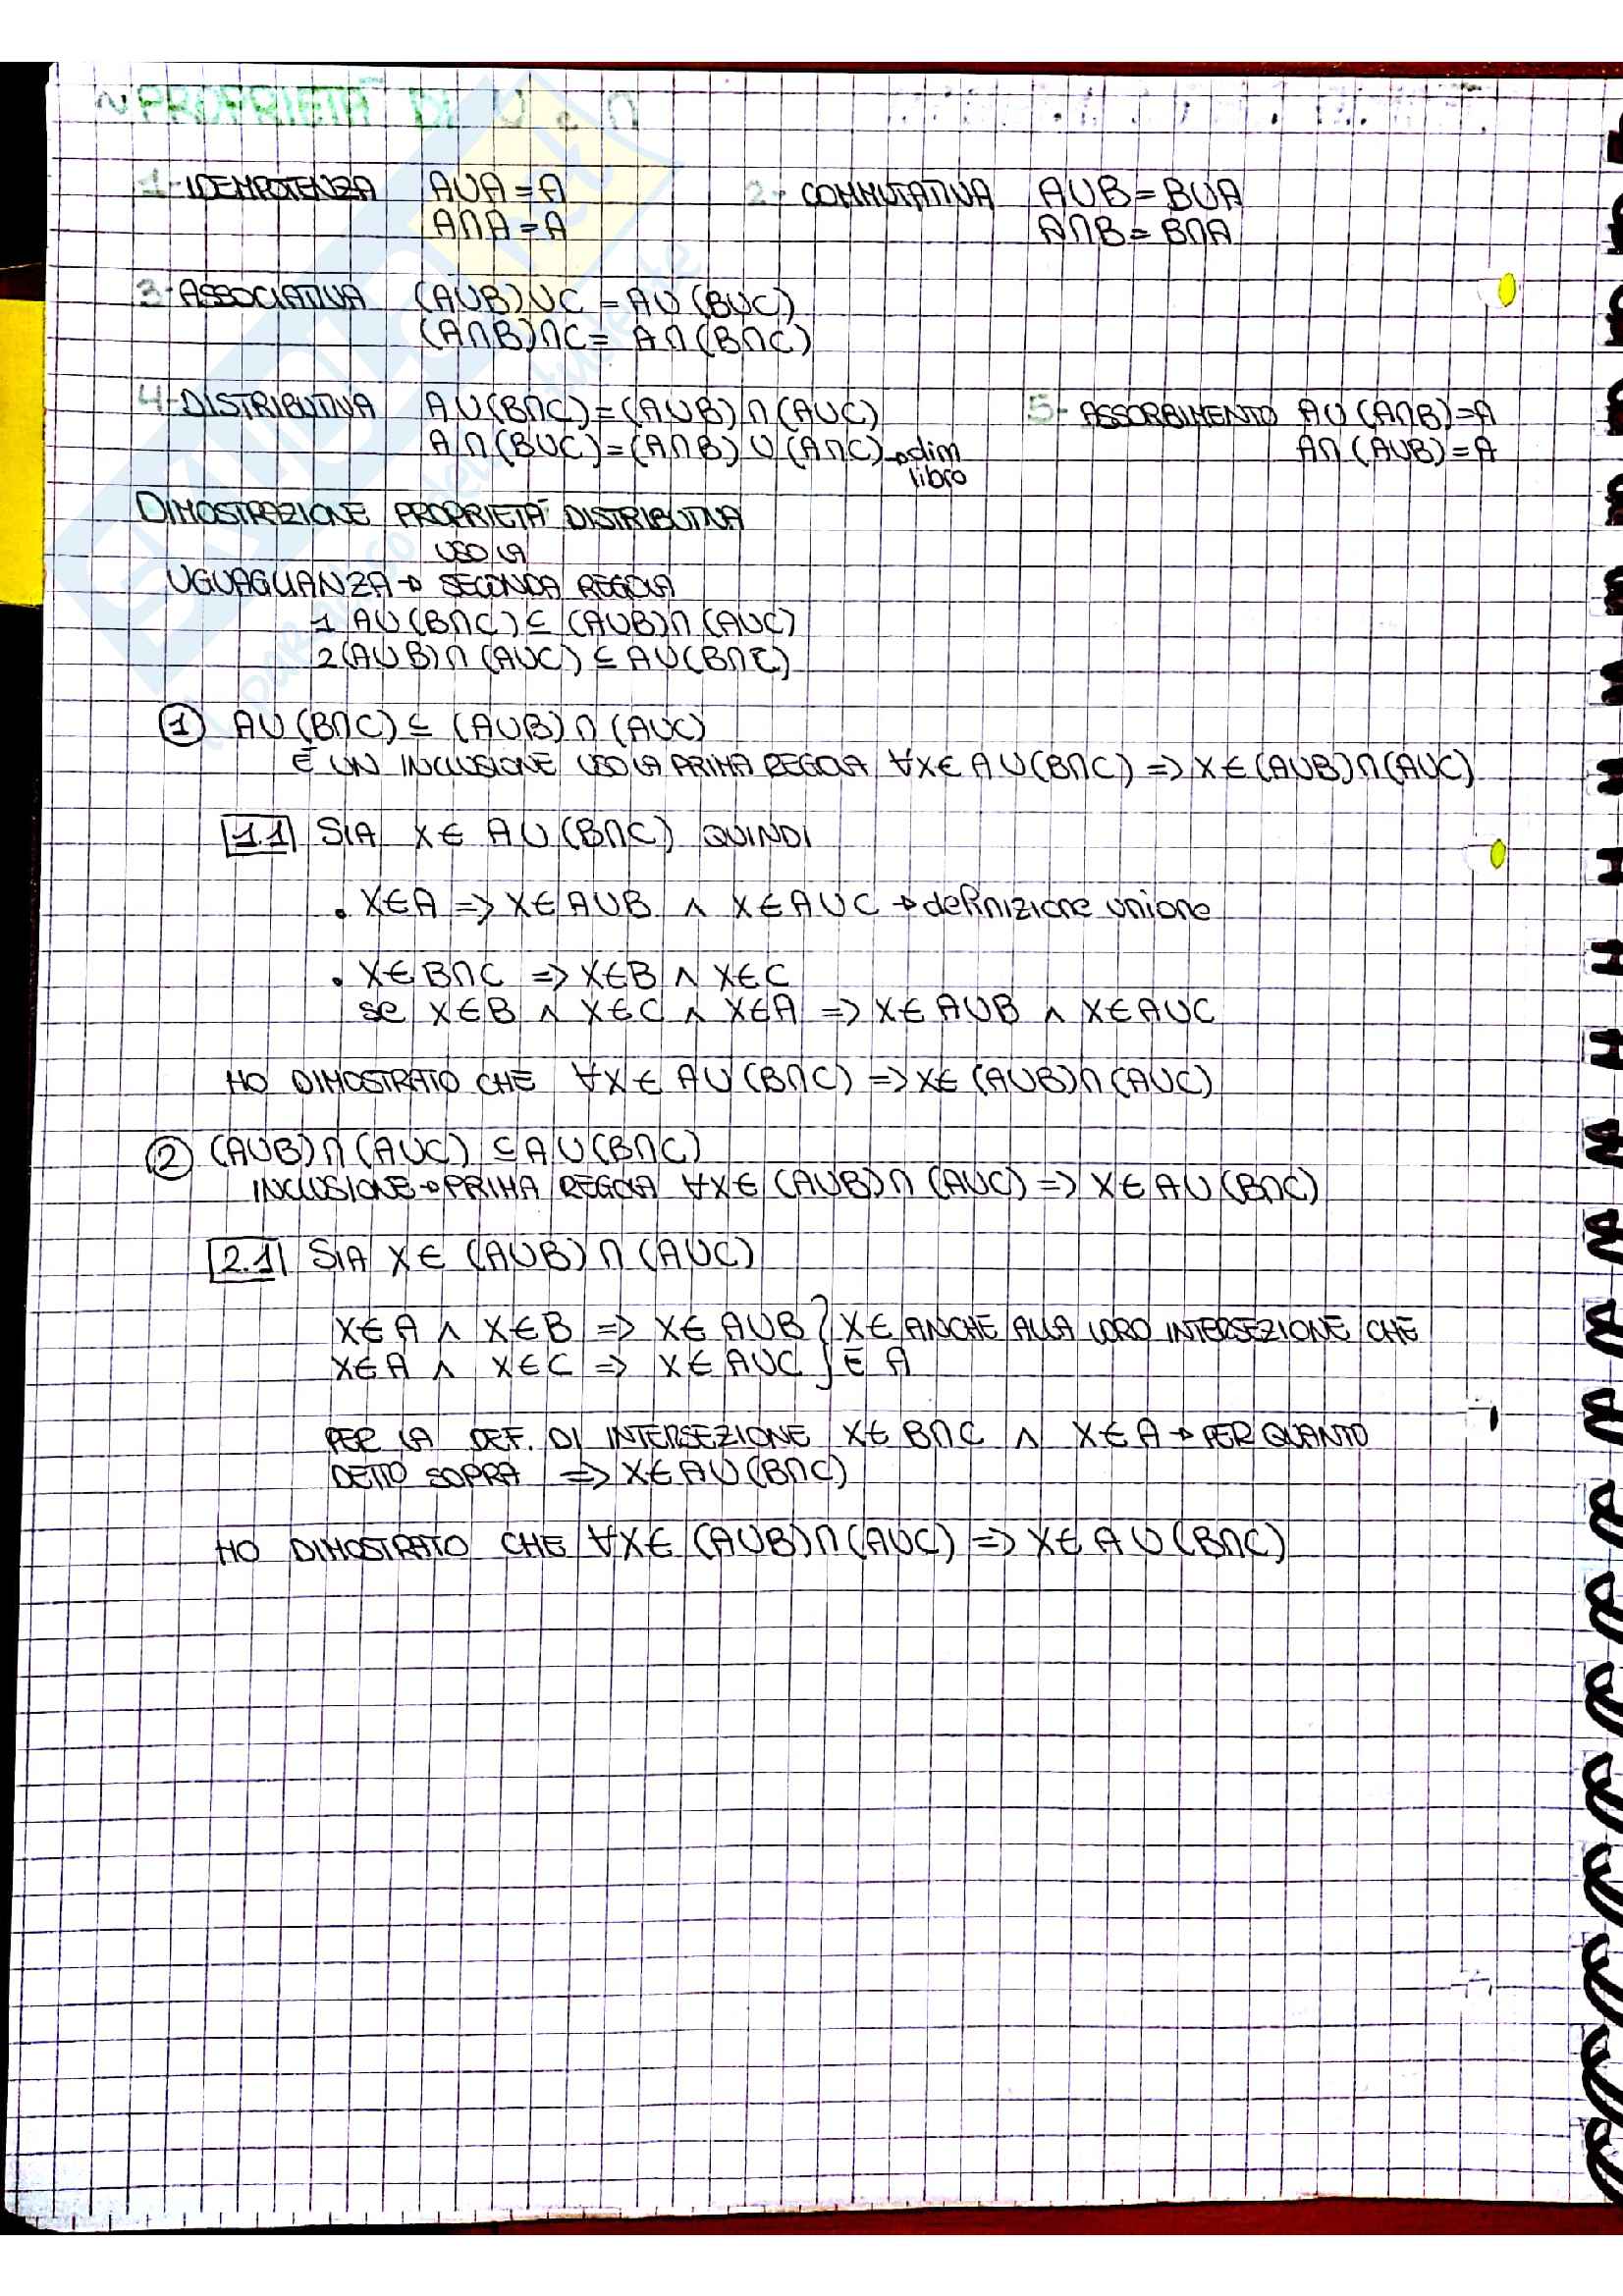 ~ PROPRIETÀ DI ∪ e ∩
1- IDEMPOTENZA A∪A = A
A∩A = A
2- COMMUTATIVA A∪B = B∪A
A∩B = B∩A
3- ASSOCIATIVA (A∪B)∪C = A∪(B∪C)
(A∩B)∩C = A∩(B∩C)
4- DISTRIBUTIVA A∪(B∩C) = (A∪B)∩(A∪C)
A∩(B∪C) = (A∩B)∪(A∩C) → dim
libro
5- ASSORBIMENTO A∪(A∩B) = A
A∩(A∪B) = A
DIMOSTRAZIONE PROPRIETÀ DISTRIBUTIVA
USO LA
UGUAGLIANZA → SECONDA REGOLA
1 A∪(B∩C) ⊆ (A∪B)∩(A∪C)
2 (A∪B)∩(A∪C) ⊆ A∪(B∩C)
① A∪(B∩C) ⊆ (A∪B)∩(A∪C)
È UN INCLUSIONE USO LA PRIMA REGOLA ∀X∈A∪(B∩C) => X∈(A∪B)∩(A∪C)
1.1 SIA X∈A∪(B∩C) QUINDI
• X∈A => X∈A∪B ∧ X∈A∪C → definizione unione
• X∈B∩C => X∈B ∧ X∈C
se X∈B ∧ X∈C ∧ X∈A => X∈A∪B ∧ X∈A∪C
HO DIMOSTRATO CHE ∀X∈A∪(B∩C) => X∈(A∪B)∩(A∪C)
② (A∪B)∩(A∪C) ⊆ A∪(B∩C)
INCLUSIONE → PRIMA REGOLA ∀X∈(A∪B)∩(A∪C) => X∈A∪(B∩C)
2.1 SIA X∈(A∪B)∩(A∪C)
X∈A ∧ X∈B => X∈A∪B } X∈ ANCHE ALLA LORO INTERSEZIONE CHE
X∈A ∧ X∈C => X∈A∪C } È A
PER LA DEF. DI INTERSEZIONE X∈B∩C ∧ X∈A → PER QUANTO
DETTO SOPRA => X∈A∪(B∩C)
HO DIMOSTRATO CHE ∀X∈(A∪B)∩(A∪C) => X∈A∪(B∩C)